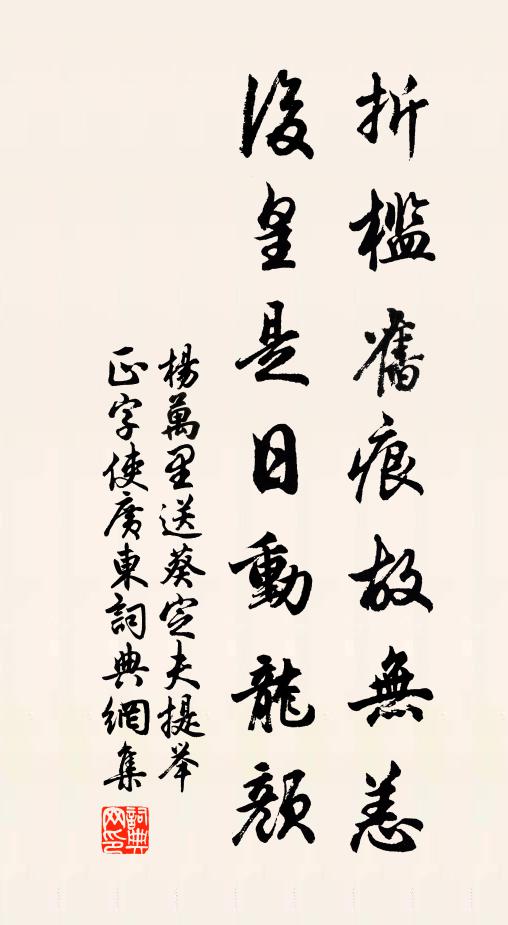 折檻舊痕故無恙
後皇是日動龍顏
楊萬里送葵定夫提举
正字使廣東詞典網集
詞典网印